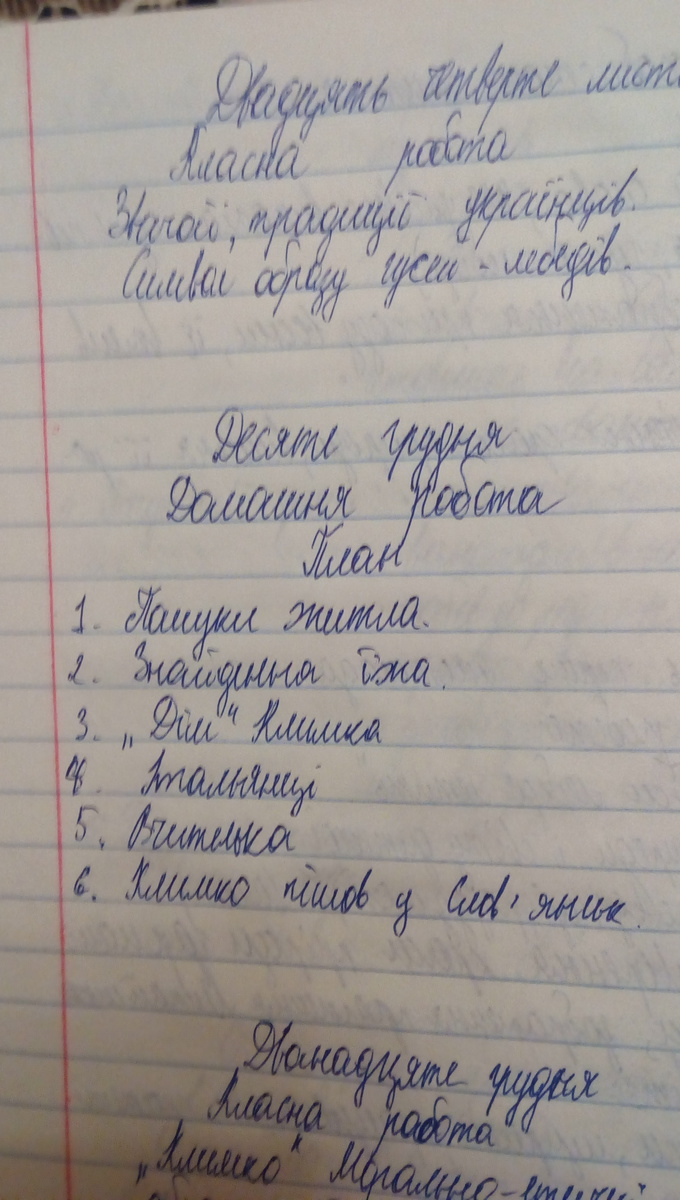 Двадцять четверте лист
Класна робота
Звичаї, традиції українців.
Символ образу гусей-лебедів.
Десяте грудня
Домашня робота
План
1. Пошуки житла.
2. Знайденна їжа.
3. „Дім" Климка
4. Італьянці
5. Вчителька
6. Климко пішов у Слов'янськ.
Дванадцяте грудня
Класна робота
„Климко" Морально-етичні